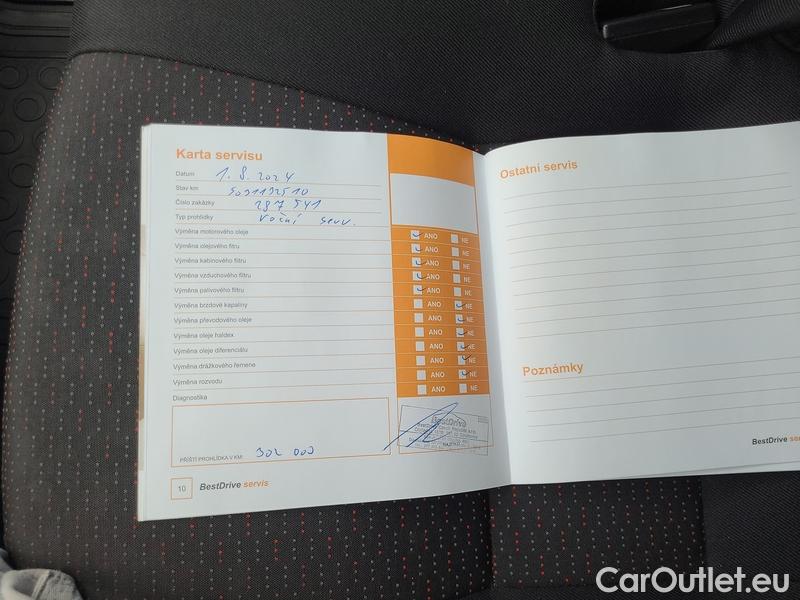 Karta servisu
Datum 1. 8. 2024
Stav km 5091192510
Číslo zakázky 287 541
Typ prohlídky Roční serv.
Výměna motorového oleje ANO NE
Výměna olejového filtru ANO NE
Výměna kabinového filtru ANO NE
Výměna vzduchového filtru ANO NE
Výměna palivového filtru ANO NE
Výměna brzdové kapaliny ANO NE
Výměna převodového oleje ANO NE
Výměna oleje haldex ANO NE
Výměna oleje diferenciálu ANO NE
Výměna drážkového řemene ANO NE
Výměna rozvodu ANO NE
Diagnostika
PŘÍŠTÍ PROHLÍDKA V KM: 302 000
BestDrive
10 BestDrive servis
Ostatní servis
Poznámky
BestDrive ser
CarOutlet.eu